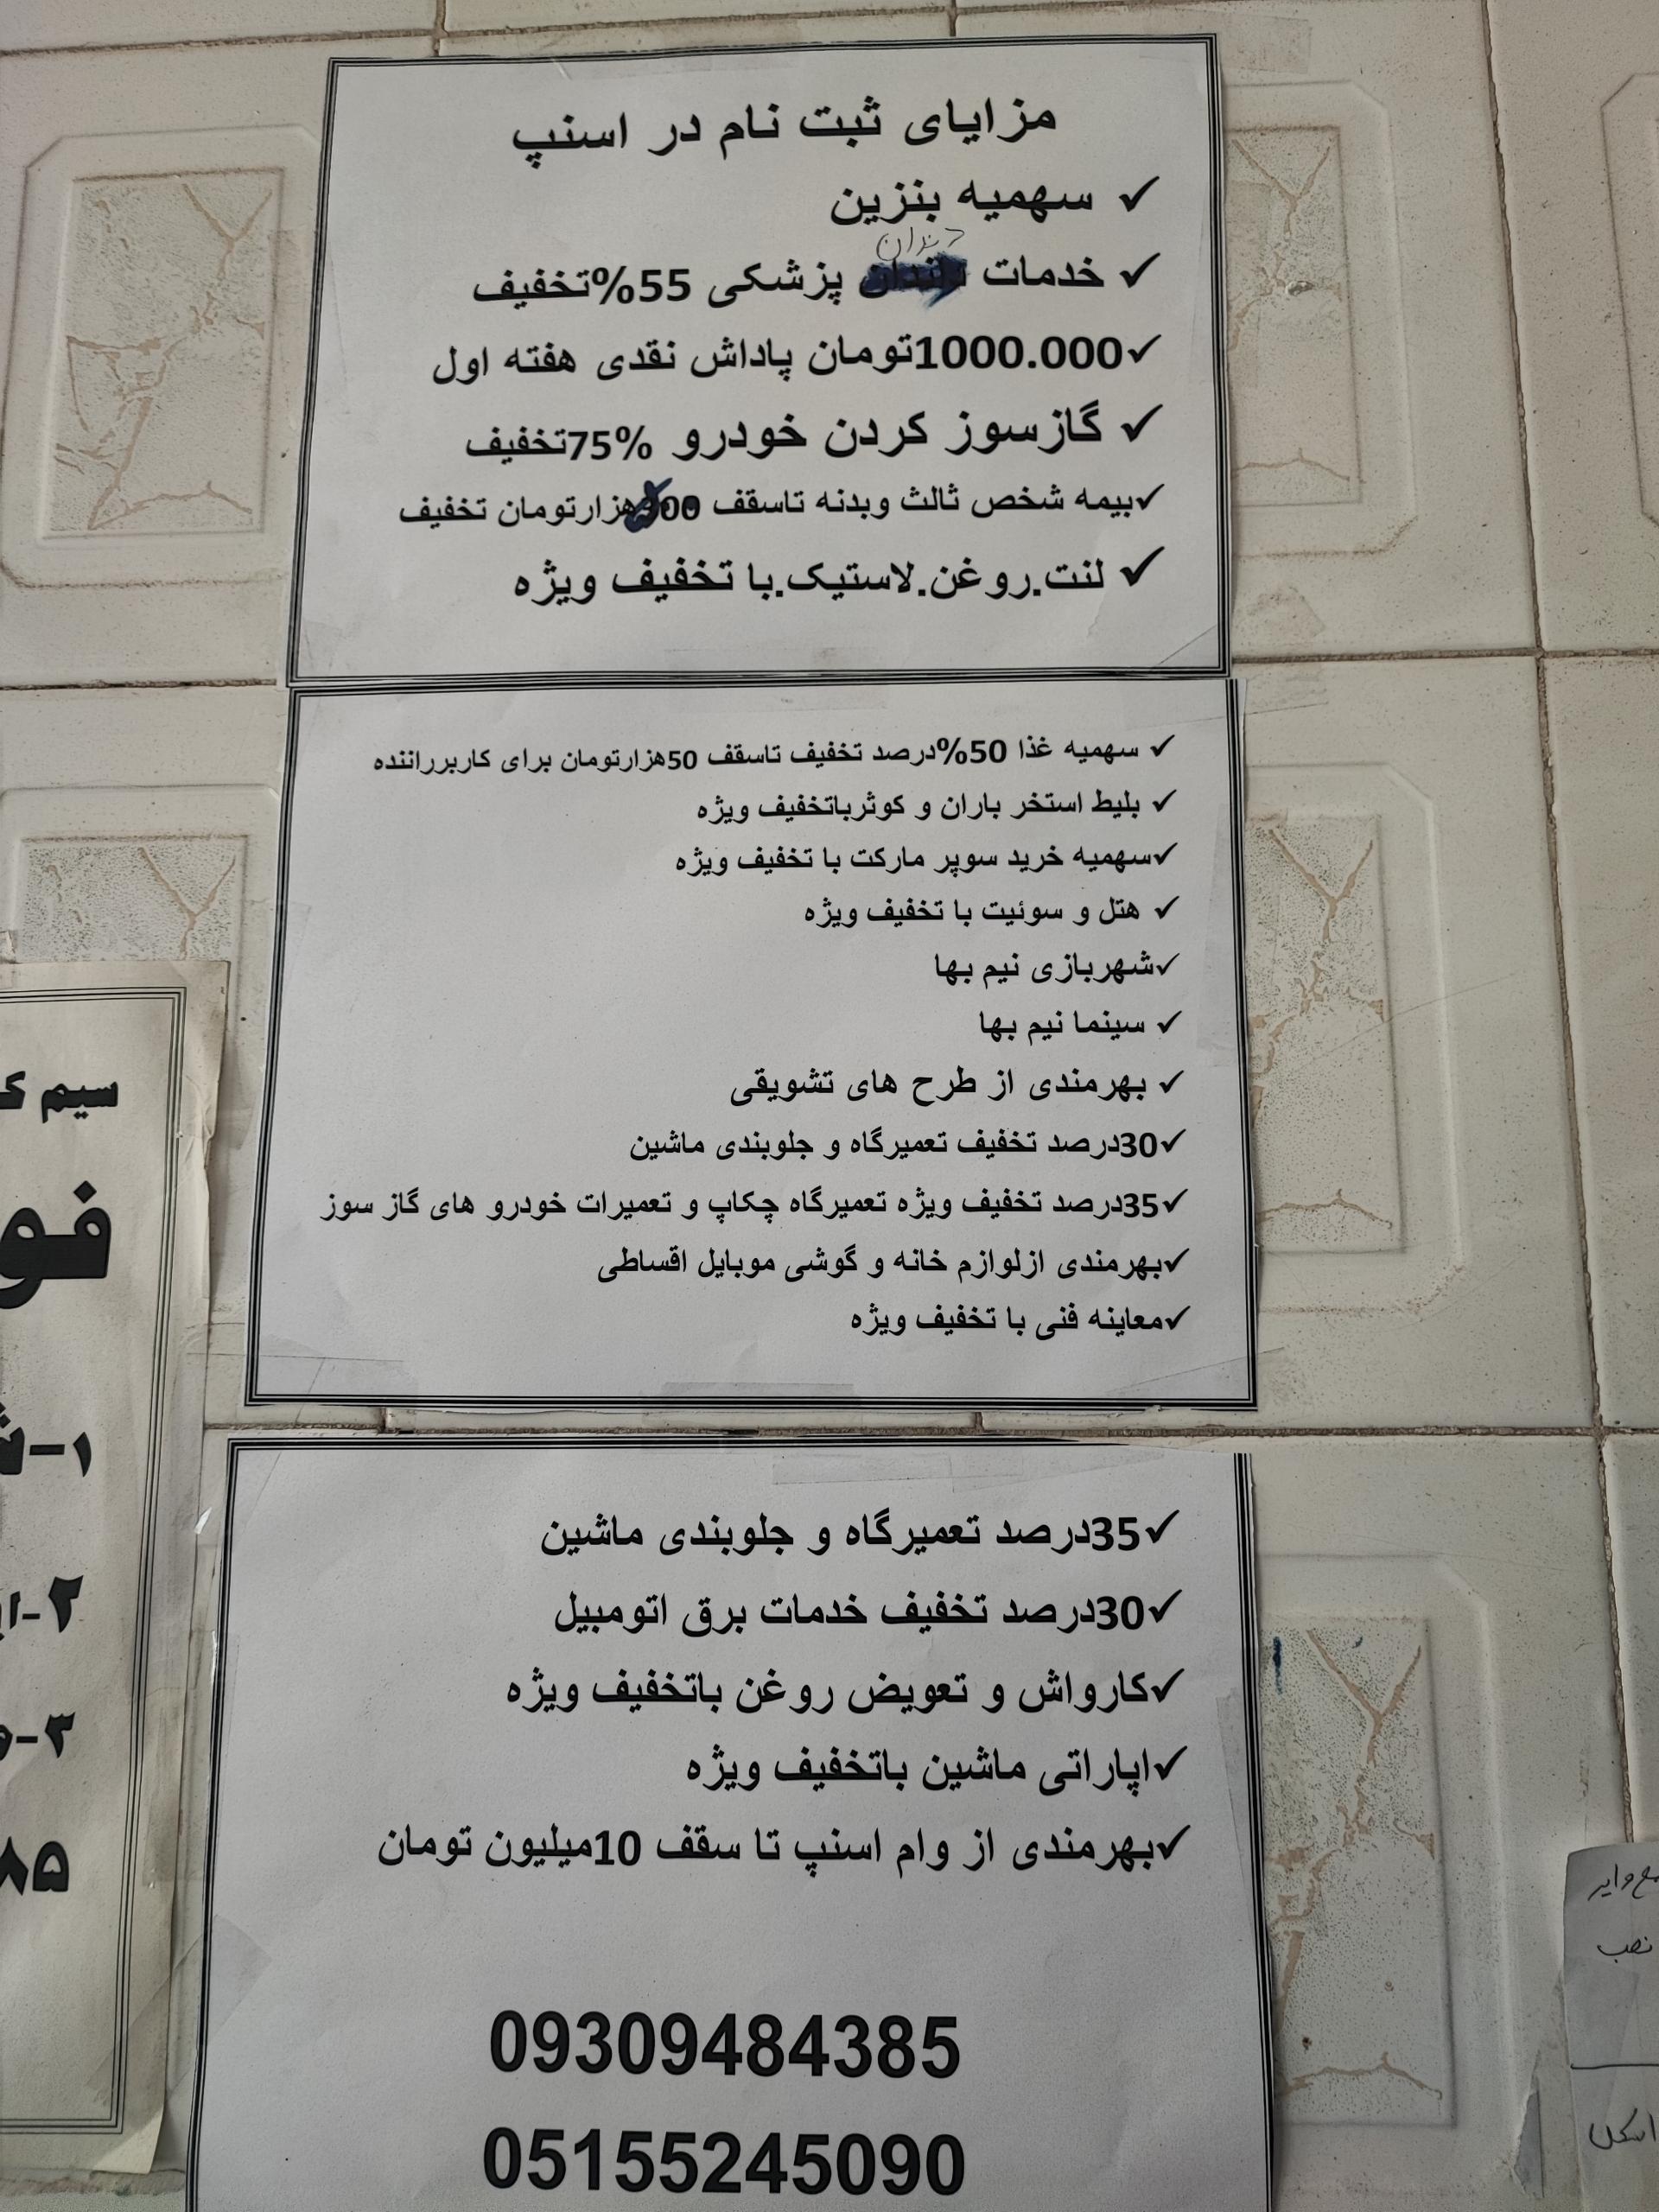 مزایای ثبت نام در اسنپ
✓ سهمیه بنزین
دندان
✓ خدمات پزشکی 55%تخفیف
✓1000.000تومان پاداش نقدی هفته اول
✓ گازسوز کردن خودرو 75%تخفیف
✓بیمه شخص ثالث وبدنه تاسقف هزارتومان تخفیف
✓ لنت.روغن.لاستیک.با تخفیف ویژه
✓ سهمیه غذا 50%درصد تخفیف تاسقف 50هزارتومان برای کاربرراننده
✓ بلیط استخر باران و کوثرباتخفیف ویژه
✓سهمیه خرید سوپر مارکت با تخفیف ویژه
✓ هتل و سوئیت با تخفیف ویژه
✓شهربازی نیم بها
✓ سینما نیم بها
✓ بهرمندی از طرح های تشویقی
✓30درصد تخفیف تعمیرگاه و جلوبندی ماشین
✓35درصد تخفیف ویژه تعمیرگاه چکاپ و تعمیرات خودرو های گاز سوز
✓بهرمندی ازلوازم خانه و گوشی موبایل اقساطی
✓معاینه فنی با تخفیف ویژه
✓35درصد تعمیرگاه و جلوبندی ماشین
✓30درصد تخفیف خدمات برق اتومبیل
✓کارواش و تعویض روغن باتخفیف ویژه
✓اپاراتی ماشین باتخفیف ویژه
✓بهرمندی از وام اسنپ تا سقف 10میلیون تومان
09309484385
05155245090
سیم
نصب